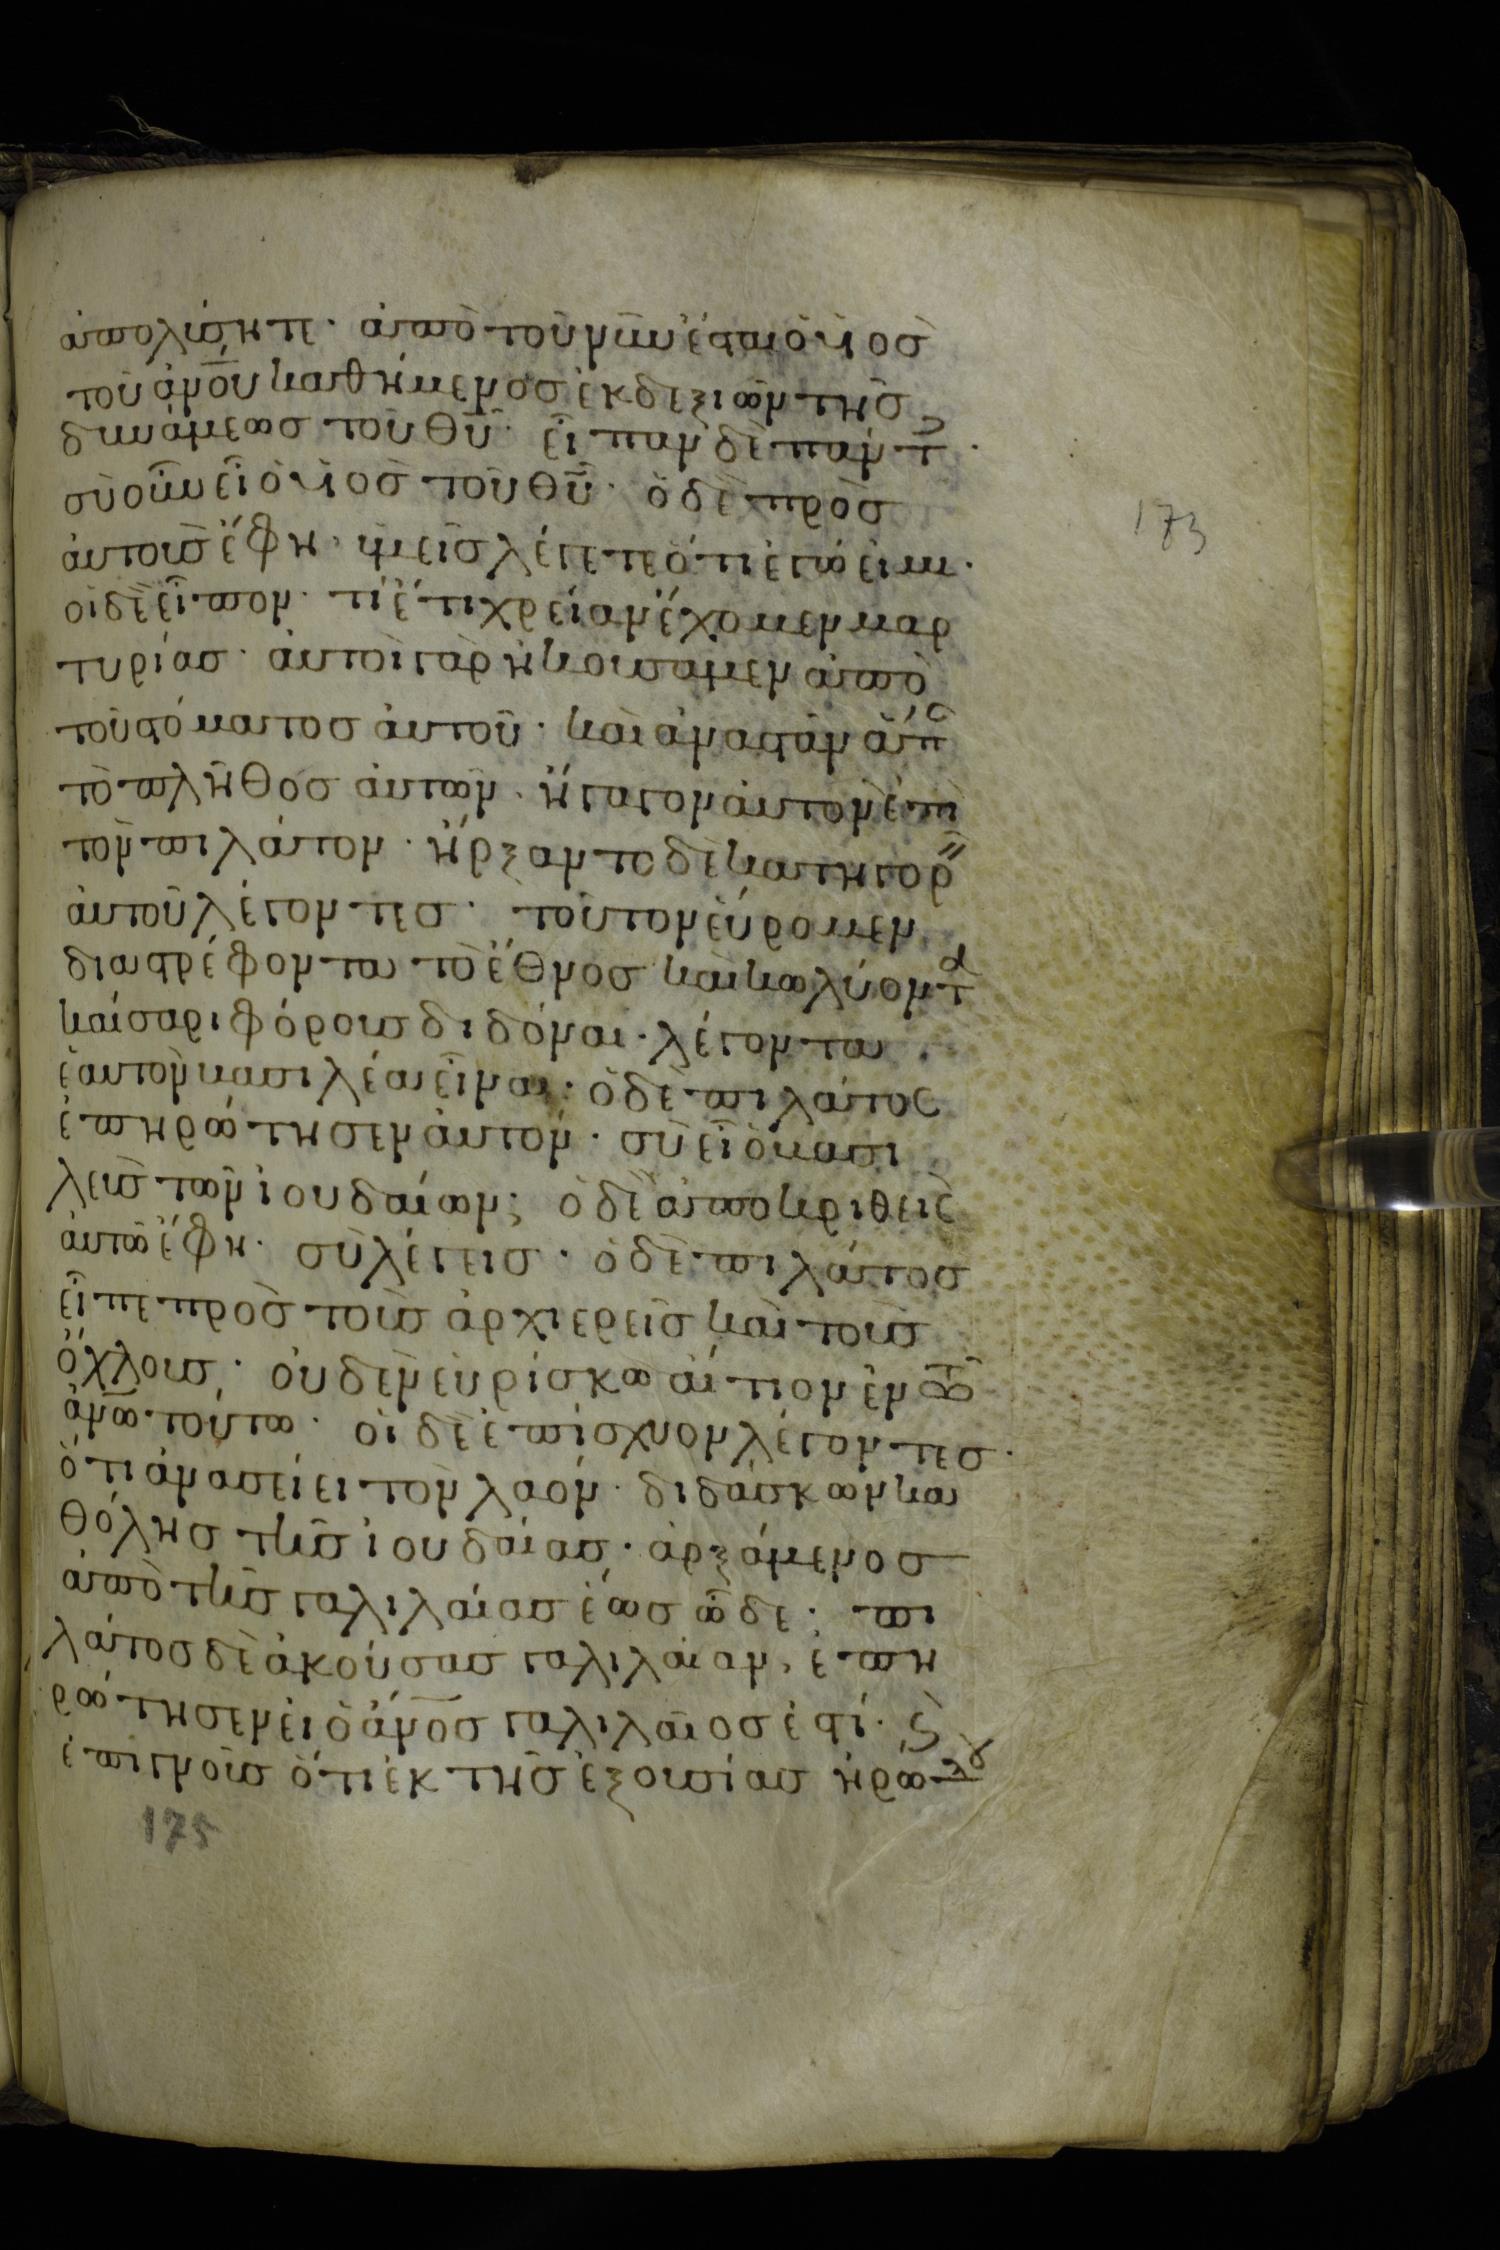 ἀπολύσητε· ἀπὸ τοῦ νῦν ἔσται ὁ υἱὸσ
τοῦ ἀν̅ο̅υ καθήμενοσ ἐκ δεξιῶν τῆσ
δυνάμεωσ τοῦ θ̅υ̅· εἶπαν δὲ πάντ(ες)·
σὺ οὖν εἶ ὁ υἱὸσ τοῦ θ̅υ̅· ὁ δὲ πρὸσ
αὐτοὺσ ἔφη· ὑμεῖσ λέγετε ὅτι ἐγώ εἰμι·
οἱ δὲ εἶπον· τί ἔτι χρείαν ἔχομεν μαρ
τυρίασ· αὐτοὶ γὰρ ἠκούσαμεν ἀπὸ
τοῦ στόματοσ αὐτοῦ· καὶ ἀναστὰν ἅπ(αν)
τὸ πλῆθοσ αὐτῶν· ἤγαγον αὐτὸν ἐπὶ
τὸν πιλάτον· ἤρξαντο δὲ κατηγορ(εῖν)
αὐτοῦ λέγοντεσ· τοῦτον εὕρομεν
διαστρέφοντα τὸ ἔθνοσ καὶ κωλύοντα
καίσαρι φόρουσ διδόναι· λέγοντα
ἑαυτὸν βασιλέα εἶναι· ὁ δὲ πιλάτοσ
ἐπηρώτησεν αὐτόν· σὺ εἶ ὁ βασι
λεὺσ τῶν ἰουδαίων; ὁ δὲ ἀποκριθεὶσ
αὐτῶ ἔφη· σὺ λέγεισ· ὁ δὲ πιλάτοσ
εἶπε πρὸσ τοὺσ ἀρχιερεῖσ καὶ τοὺσ
ὄχλουσ· οὐδὲν εὑρίσκω αἴτιον ἐν τῶ
ἀν̅ω̅ τούτω· οἱ δὲ ἐπίσχυον λέγοντεσ·
ὅτι ἀνασείει τὸν λαόν· διδάσκων κα
θόλησ τῆσ ἰουδαίασ· ἀρξάμενοσ
ἀπὸ τῆσ γαλιλαίασ ἕωσ ὧδε· πι
λάτοσ δὲ ἀκούσασ γαλιλαίαν, ἐπη
ρώτησεν εἰ ὁ ἀν̅ο̅σ γαλιλαῖοσ ἐστί· (καὶ)
ἐπιγνοὺσ ὅτι ἐκ τῆσ ἐξουσίασ ἡρώδου
173
175